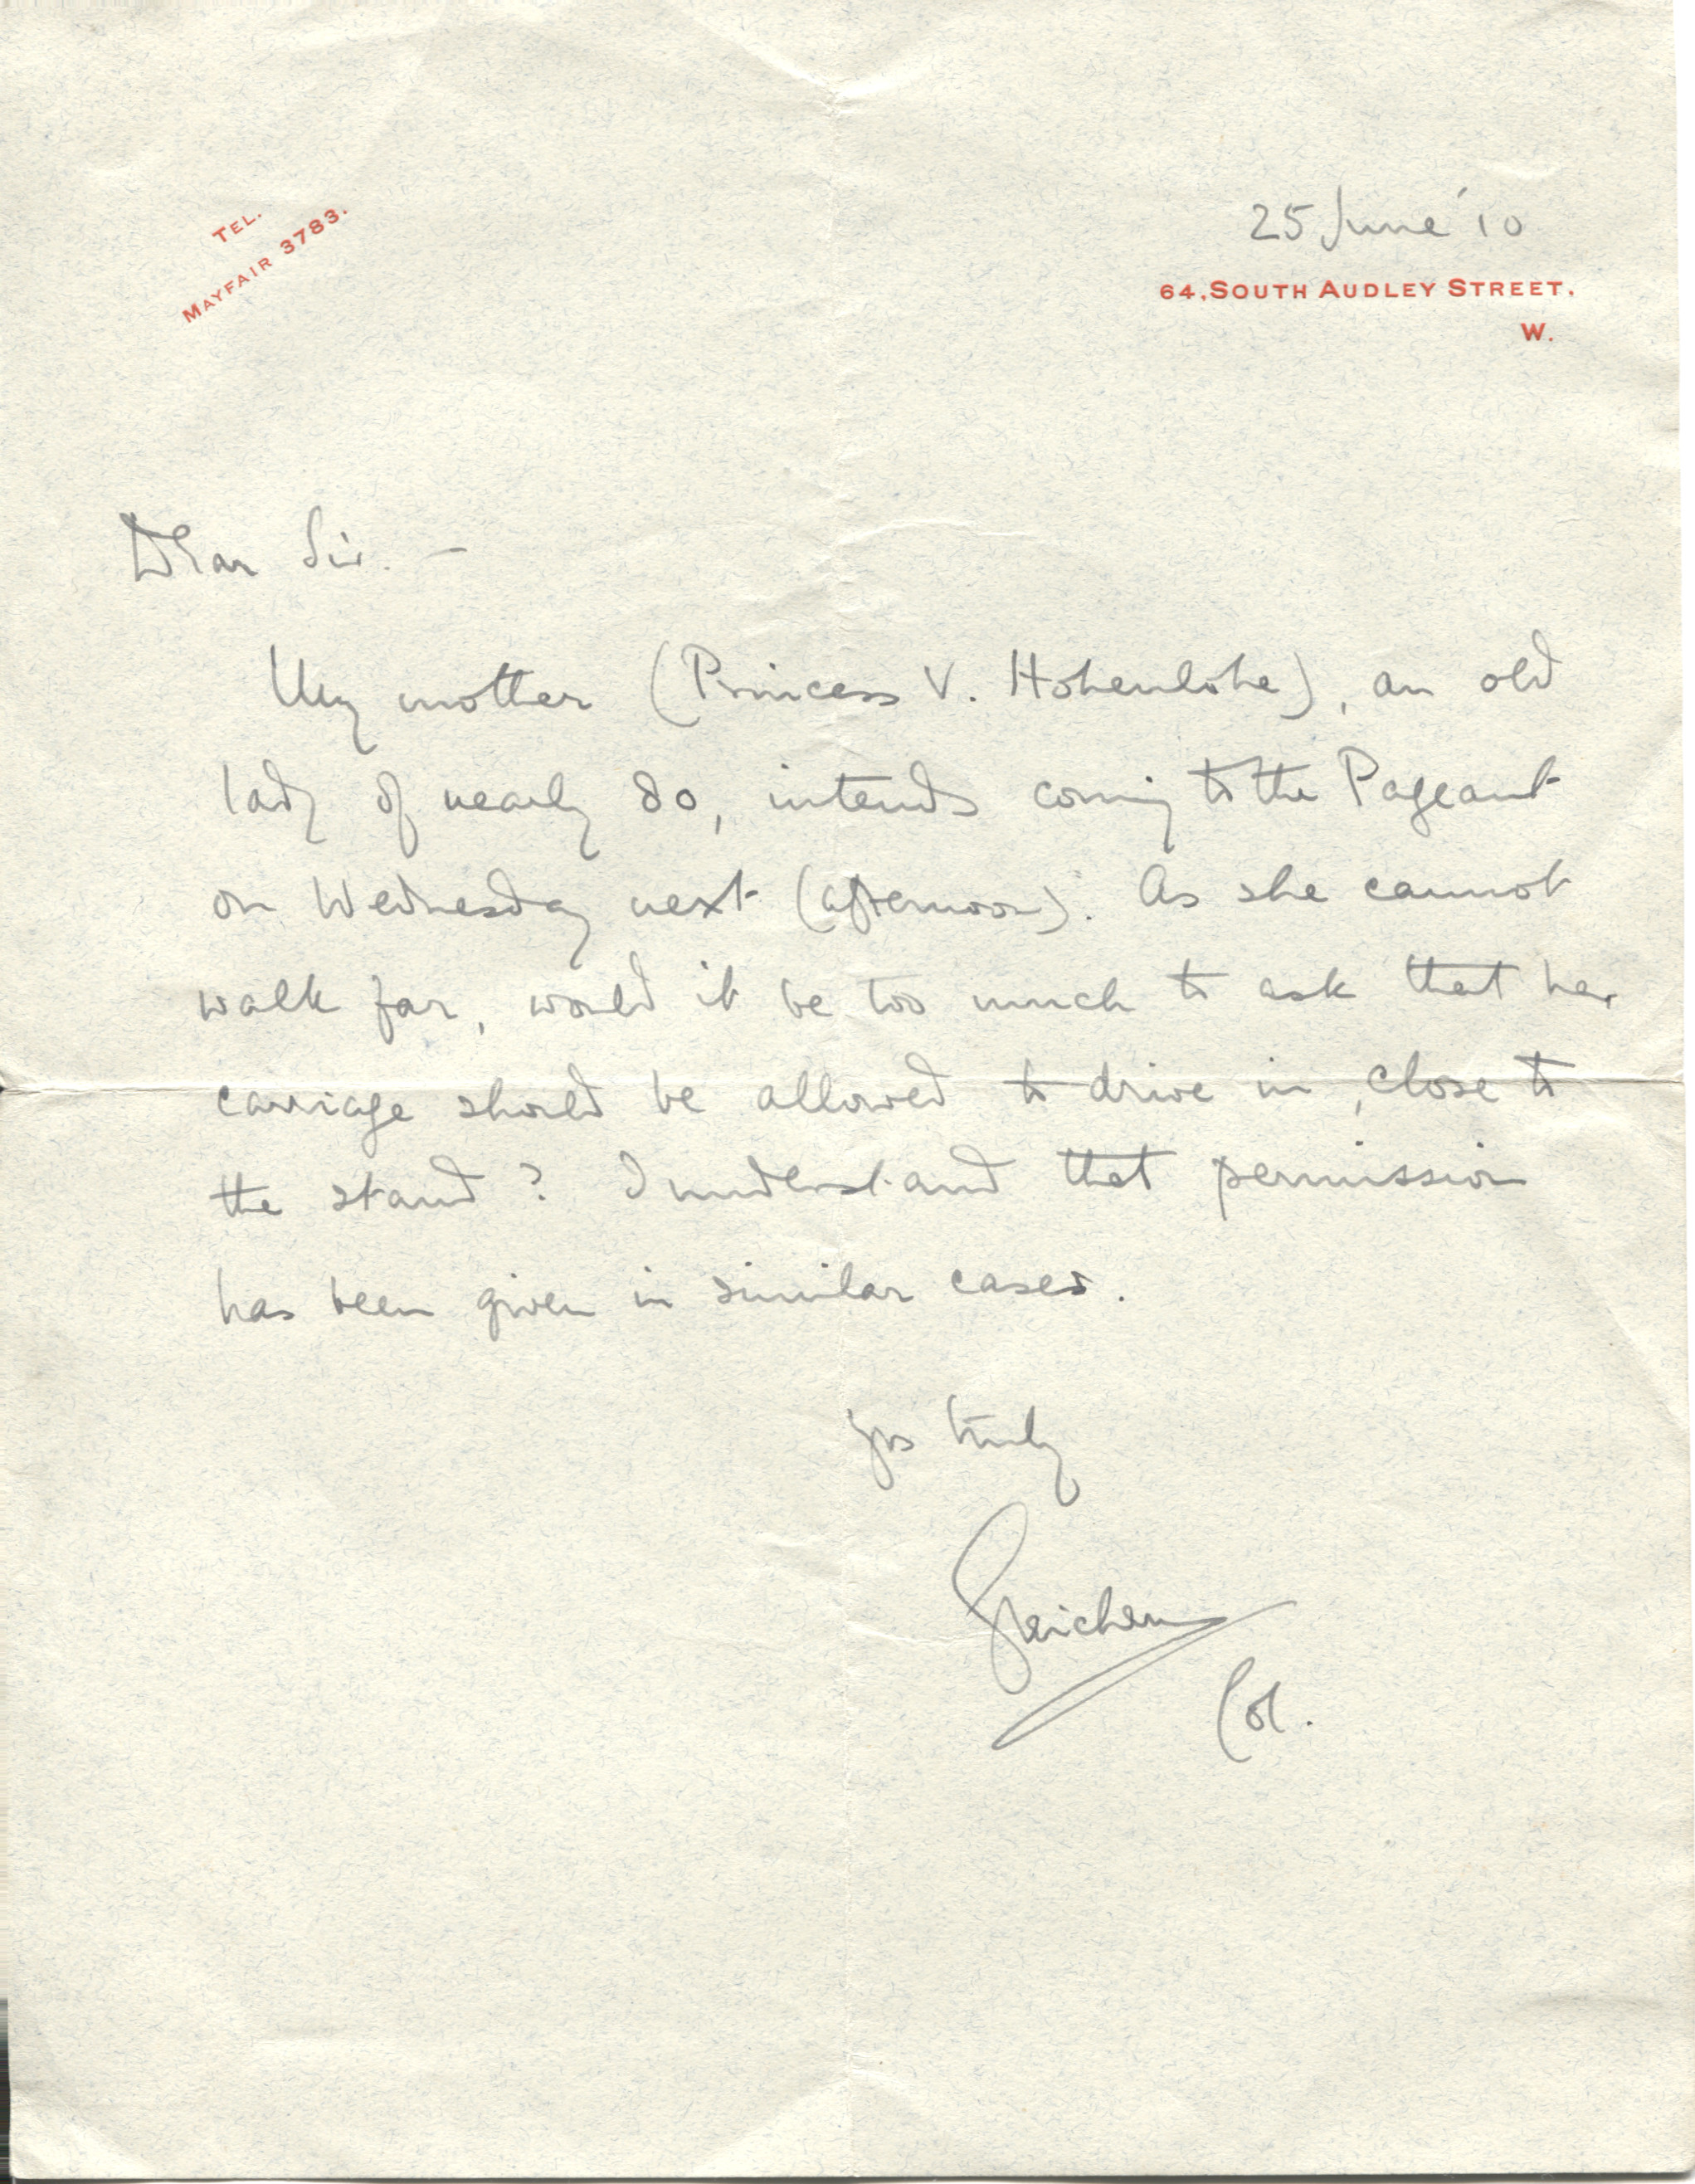 TEL.
MAYFAIR 3783.
25 June '10
64, SOUTH AUDLEY STREET,
W.
Dear Sir. –
My mother (Princess V. Hohenlohe), an old
lady of nearly 80, intends coming to the Pageant
on Wednesday next (afternoon). As she cannot
walk far, would it be too much to ask that her
carriage should be allowed to drive in, close to
the stand? I understand that permission
has been given in similar cases.
yrs truly
Gleichen
Col.